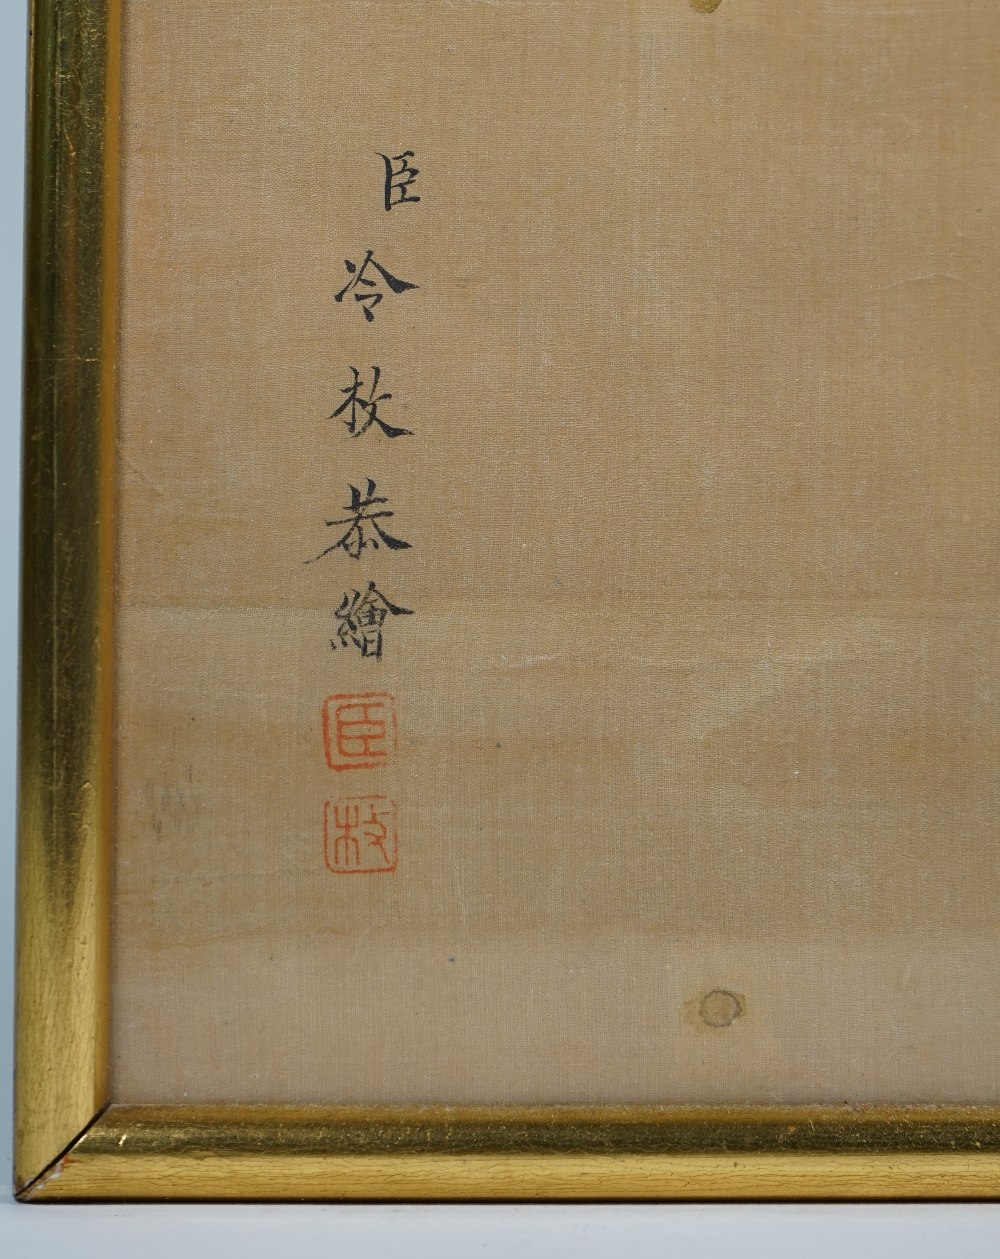 臣冷枚恭繪
臣
枚